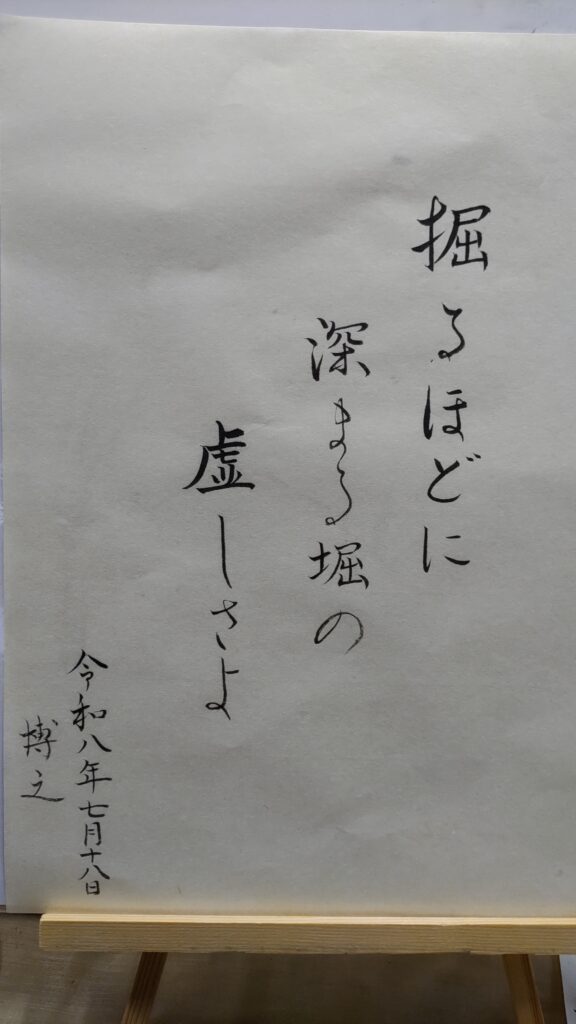 掘るほどに
深まる堀の
虚しさよ
令和八年七月十八日
博之